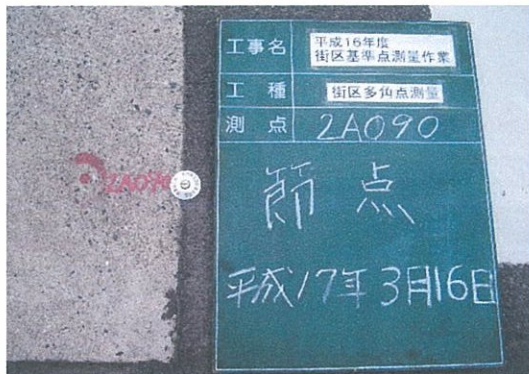 工事名
平成16年度
街区基準点測量作業
工種
街区多角点測量
測点
2A090
節点
平成17年3月16日
2A090